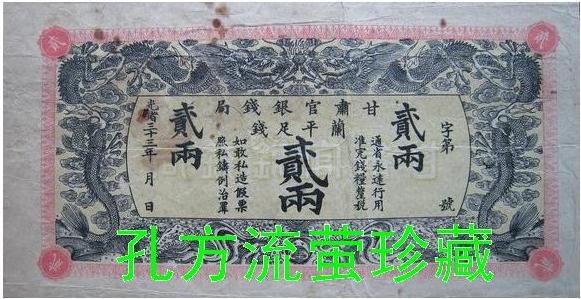 甘肅官銀錢局
蘭平足錢
字第 號
貳兩
通省永遠行用
准完錢糧釐稅
貳兩
如敢私造假票
照私鑄例治罪
貳兩
光緒三十三年 月 日
孔方流萤珍藏